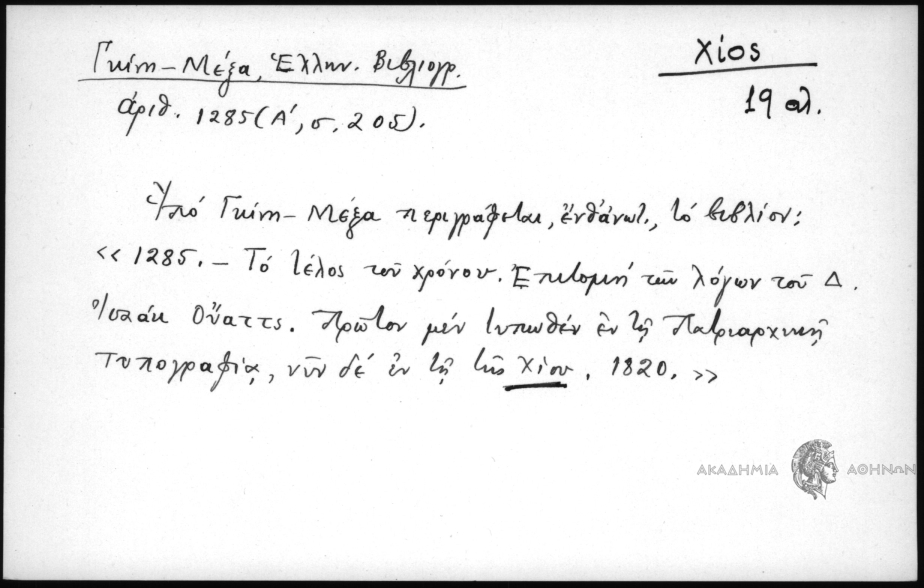 Γκίνη - Μέξα, Ἑλλην. Βιβλιογρ.
Χίος
ἀριθ. 1285 (Α', σ. 205).
19 αἰ.
Ὑπό Γκίνη - Μέξα περιγράφεται, ἔνθ' ἀνωτ., τό βιβλίον:
«1285. – Τό τέλος τοῦ χρόνου. Ἐπιτομή τῶν λόγων τοῦ Δ.
Ἰσαάκ Οὔαττς. Πρῶτον μέν τυπωθέν ἐν τῇ Πατριαρχικῇ
Τυπογραφίᾳ, νῦν δέ ἐν τῇ τῆς Χίου. 1820.»
ΑΚΑΔΗΜΙΑ ΑΘΗΝΩΝ